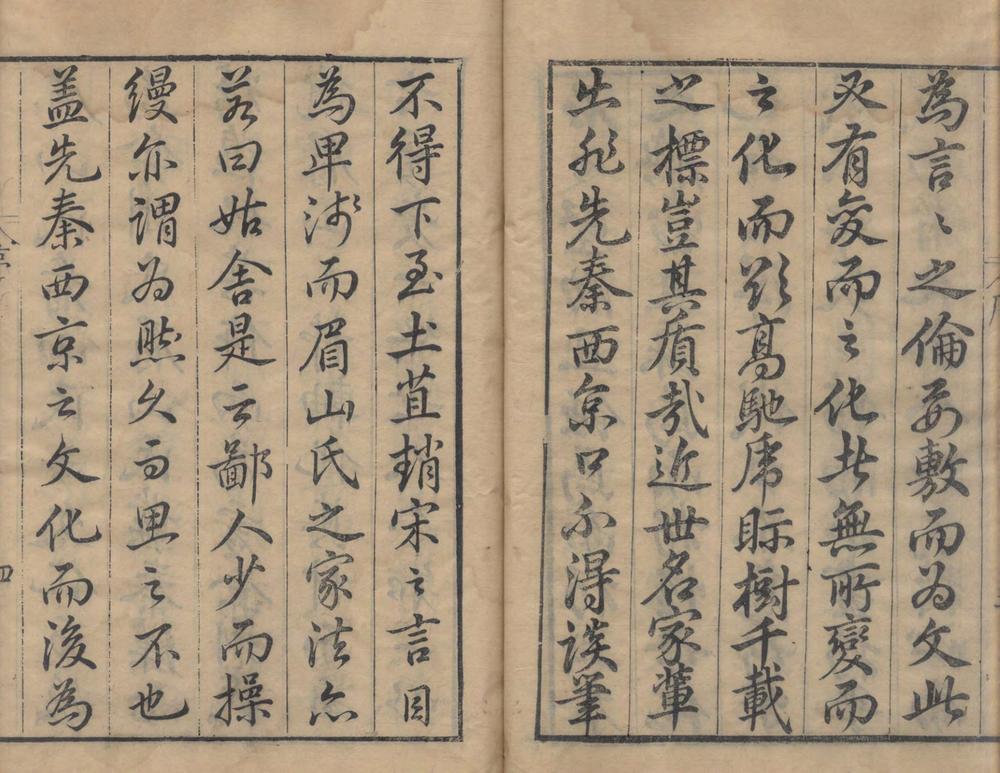 為言〻之倫妥敷而為文此
又有変而之化者無所變而
之化而欲高馳虎眎樹千載
之標豈其質哉近世名家輩
出非先秦西京口不得談筆
不得下至土苴趙宋之言目
為卑淺而眉山氏之家法亦
若曰姑舍是云鄙人少而操
縵亦謂為然久而思之不也
盖先秦西京之文化而後為